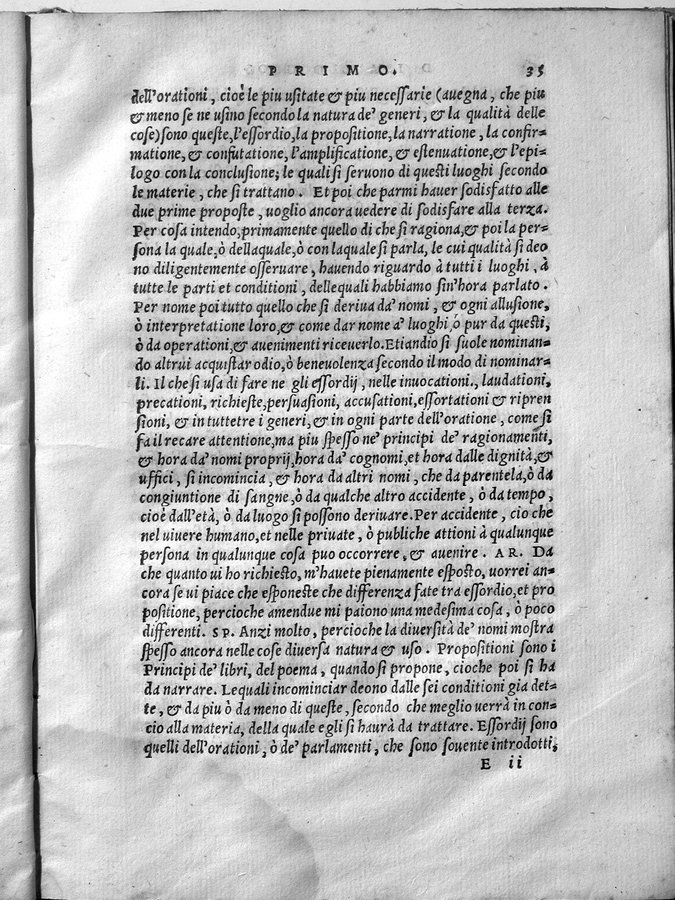 PRIMO. 35
dell'orationi, cioè le piu usitate & piu necessarie (auegna, che piu
& meno se ne usino secondo la natura de' generi, & la qualità delle
cose) sono queste, l'essordio, la propositione, la narratione, la confir-
matione, & confutatione, l'amplificatione, & estenuatione, & l'epi-
logo con la conclusione; le quali si seruono di questi luoghi secondo
le materie, che si trattano. Et poi che parmi hauer sodisfatto alle
due prime proposte, uoglio ancora uedere di sodisfare alla terza.
Per cosa intendo, primamente quello di che si ragiona, & poi la per-
sona la quale, ò dellaquale, ò con laquale si parla, le cui qualità si deo
no diligentemente osseruare, hauendo riguardo à tutti i luoghi, à
tutte le parti et conditioni, dellequali habbiamo sin'hora parlato.
Per nome poi tutto quello che si deriua da' nomi, & ogni allusione,
ò interpretatione loro, & come dar nome a' luoghi, ò pur da questi,
ò da operationi, & auenimenti riceuerlo. Etiandio si suole nominan-
do altrui acquistar odio, ò beneuolenza secondo il modo di nominar-
li. Il che si usa di fare ne gli essordij, nelle inuocationi., laudationi,
precationi, richieste, persuasioni, accusationi, essortationi & ripren
sioni, & in tuttetre i generi, & in ogni parte dell'oratione, come si
fa il recare attentione, ma piu spesso ne' principi de' ragionamenti,
& hora da' nomi proprij, hora da' cognomi, et hora dalle dignità, &
uffici, si incomincia, & hora da altri nomi, che da parentela, ò da
congiuntione di sangne, ò da qualche altro accidente, ò da tempo,
cioè dall'età, ò da luogo si possono deriuare. Per accidente, cio che
nel uiuere humano, et nelle priuate, ò publiche attioni à qualunque
persona in qualunque cosa puo occorrere, & auenire. AR. Da
che quanto ui ho richiesto, m'hauete pienamente esposto, uorrei an-
cora se ui piace che esponeste che differenza fate tra essordio, et pro
positione, percioche amendue mi paiono una medesima cosa, ò poco
differenti. SP. Anzi molto, percioche la diuersità de' nomi mostra
spesso ancora nelle cose diuersa natura & uso. Propositioni sono i
Principi de' libri, del poema, quando si propone, cioche poi si ha
da narrare. Lequali incominciar deono dalle sei conditioni gia det-
te, & da piu ò da meno di queste, secondo che meglio uerrà in con-
cio alla materia, della quale egli si haurà da trattare. Essordij sono
quelli dell'orationi, ò de' parlamenti, che sono souente introdotti,
E ii